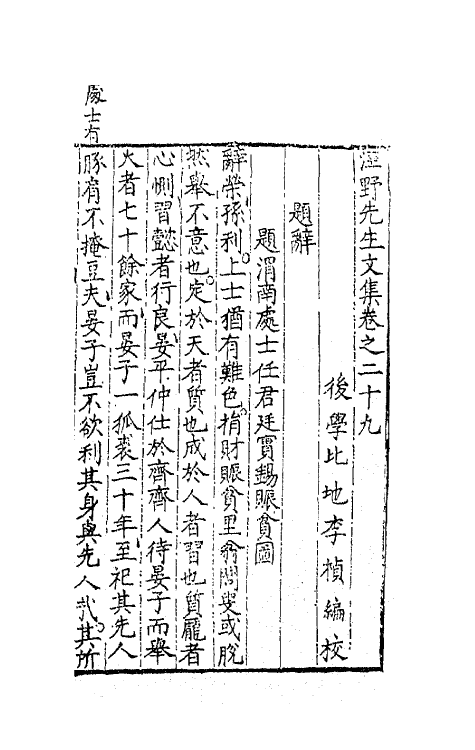 涇野先生文集卷之二十九
後學北地李楨編校
題辭
題渭南處士任君廷實錫賑貧圖
辭榮孫利上士猶有難色捐財賑貧里翁閭叟或脫
然舉不意也定於天者質也成於人者習也質龐者
心惻習懿者行良晏平仲仕於齊齊人待晏子而舉
火者七十餘家而晏子一狐裘三十年至祀其先人
豚肩不掩豆夫晏子豈不欲利其身與先人哉其所
處士有